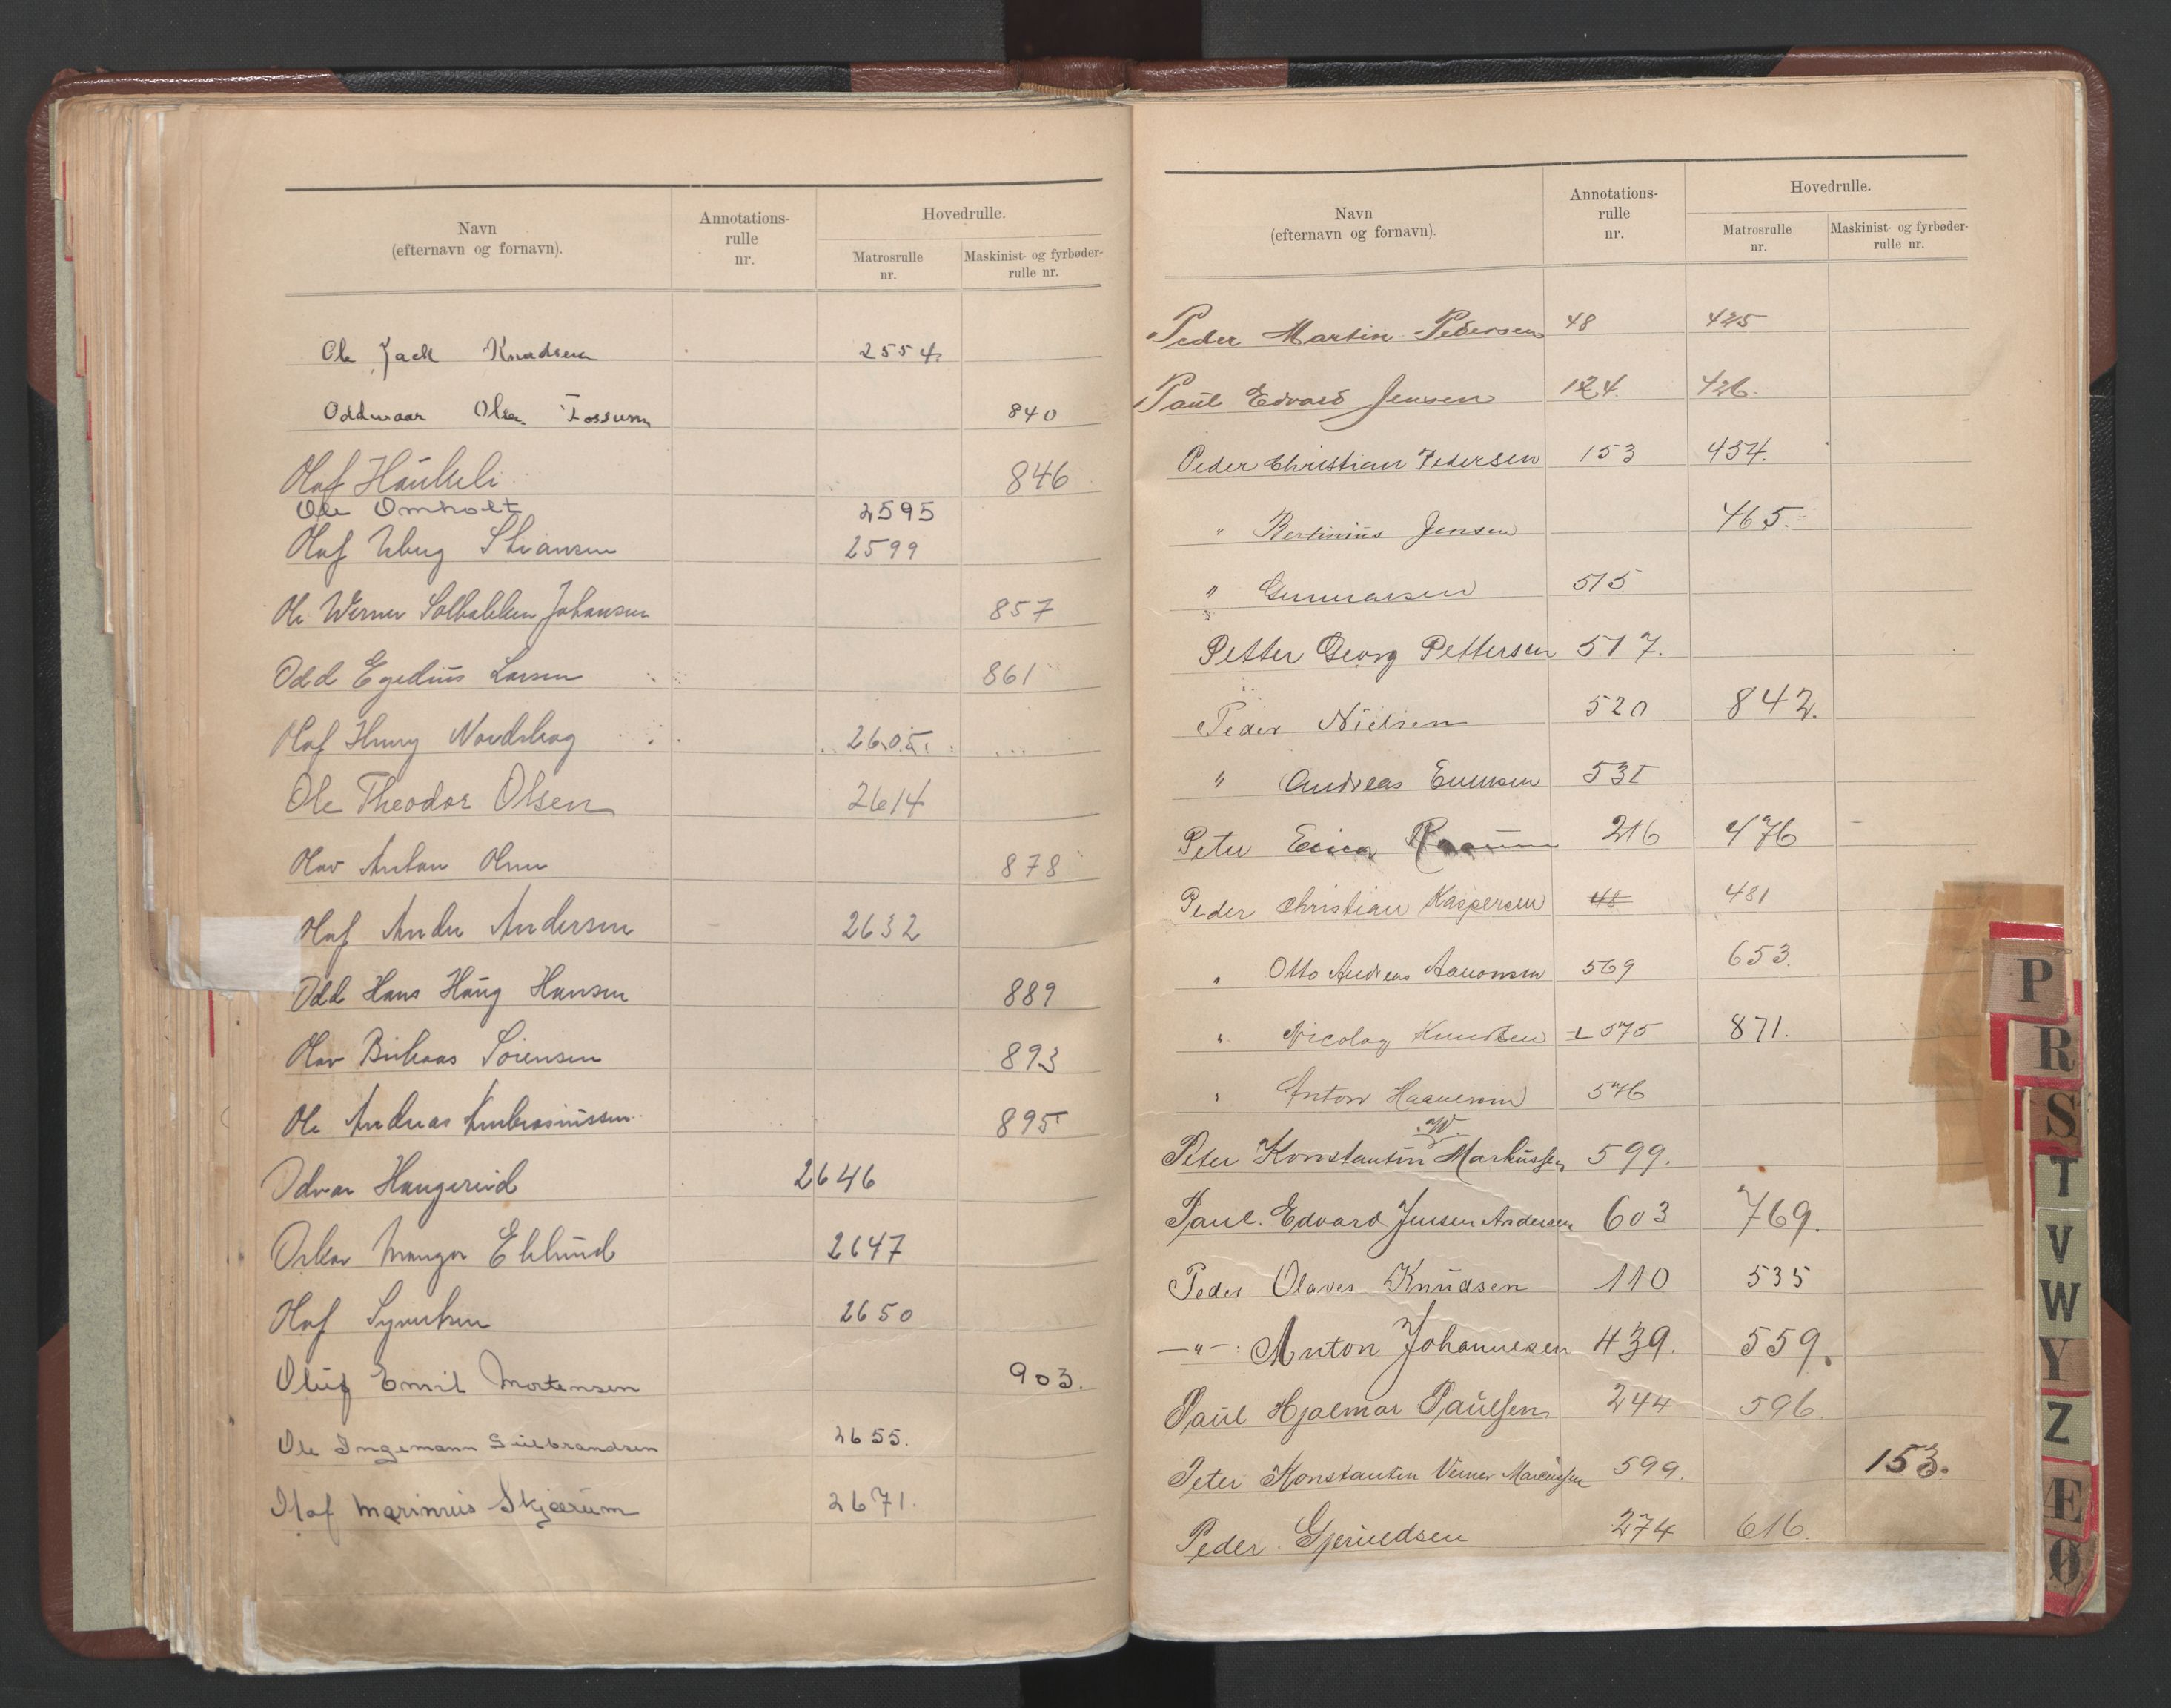 Navn
(efternavn og fornavn).
Annotations-
rulle
nr.
Hovedrulle.
Matrosrulle
nr.
Maskinist- og fyrbøder-
rulle nr.
Ole Jack Knudsen 2554
Oddvaar Olsen Fossum 840
Olaf Haukeli 846
Ole Omholt 2595
Olaf Uberg Stiansen 2599
Ole Werner Solbakken Johansen 857
Odd Egedius Larsen 861
Olaf Henry Nordskog 2605
Ole Theodor Olsen 2614
Olav Anton Olsen 878
Olaf Andre Andersen 2632
Odd Hans Haug Hansen 889
Olav Birkaas Sørensen 893
Ole Andreas Ambrosiussen 895
Odvar Haugerud 2646
Oskar Mangor Eklund 2647
Olaf Syvertsen 2650
Oluf Emil Mortensen 903.
Ole Ingemann Gulbrandsen 2655.
Olaf Marinius Skjærum 2671.
Navn
(efternavn og fornavn).
Annotations-
rulle
nr.
Hovedrulle.
Matrosrulle
nr.
Maskinist- og fyrbøder-
rulle nr.
Peder Martin Pedersen 48 425
Paul Edvard Jensen 124. 426.
Peder Christian Pedersen 153 454.
" Bertinius Jensen 465.
" Gunnarsen 515.
Petter Georg Pettersen 517.
Peder Nielsen 520 842.
" Andreas Evensen 535
Peter 216 476
Peder Christian Kaspersen 48 481
" Otto Andreas Aanonsen 569 653.
" Nicolay Knudsen 575 871.
" Anton Haavesen 576
W.
Peter Konstantin Markussen 599.
Paul. Edvard Jensen Andersen 603 769.
Peder Olaves Knudsen 110 535
—"— Anton Johannesen 439. 559.
Paul Hjalmar Paulsen 244 596
Peter Konstantin Verner Marcussen 599. 153.
Peder Gjeruldsen 274 616.
P
R
S
T
V
W
Y
Z
Æ
Ø